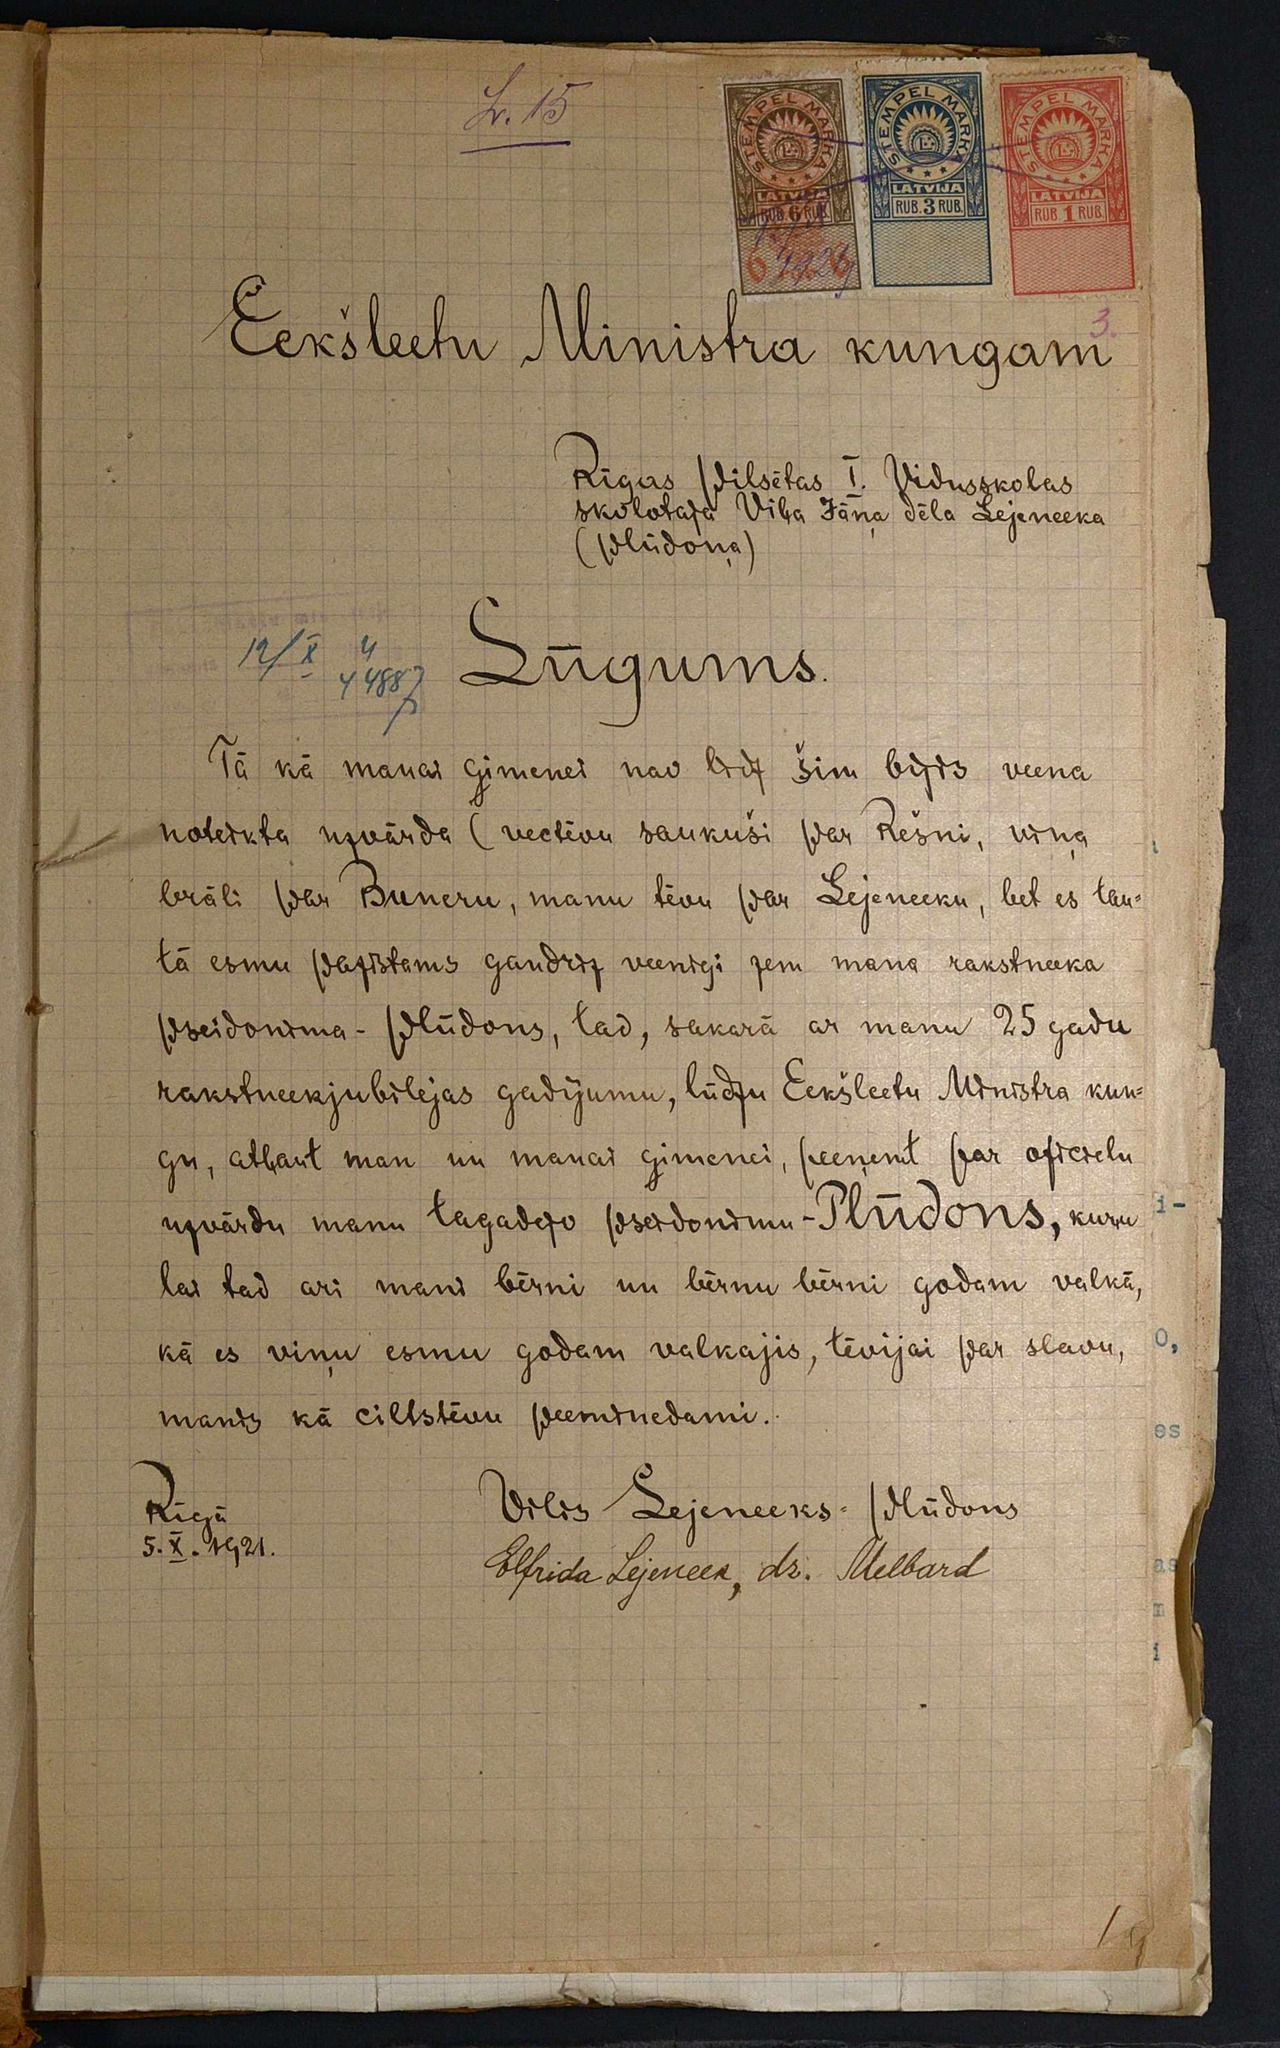 Lr. 15
STEMPEL MARKA STEMPEL MARKA STEMPEL MARKA
LATVIJA LATVIJA LATVIJA
RUB. 6 RUB. RUB. 3 RUB. RUB. 1 RUB.
3.
Eekšleetu Ministra kungam
Rigas pilsētas I. Vidusskolas
skolotaja Viļa Jāņa dēla Lejeneeka
(Plūdoņa)
12/X 4487
Lūgums.
Tā kā manai gimenei nav lidz šim bijis veena
noteikta uzvārda (vectēvu saukuši par Rešni, viņa
brāli par Buneru, manu tēvu par Lejeneeku, bet es tau=
tā esmu pazistams gandriz veenigi zem mana rakstneeka
pseidonima - Plūdons, tad, sakarā ar manu 25 gadu
rakstneekjubilejas gadijumu, lūdzu Eekšleetu Ministra kun=
gu, atļaut man un manai gimenei, peeņemt par oficielu
uzvārdu manu tagadejo pseidonimu - Plūdons, kuru
lai tad ari mani bērni un bērnu bērni godam valkā,
kā es viņu esmu godam valkajis, tēvijai par slavu,
manis kā ciltstēvu peeminedami.
Rigā
5. X. 1921.
Vilis Lejeneeks - Plūdons
Elfrida Lejeneek, dz. Melbard
i-
o,
es
as
m
i